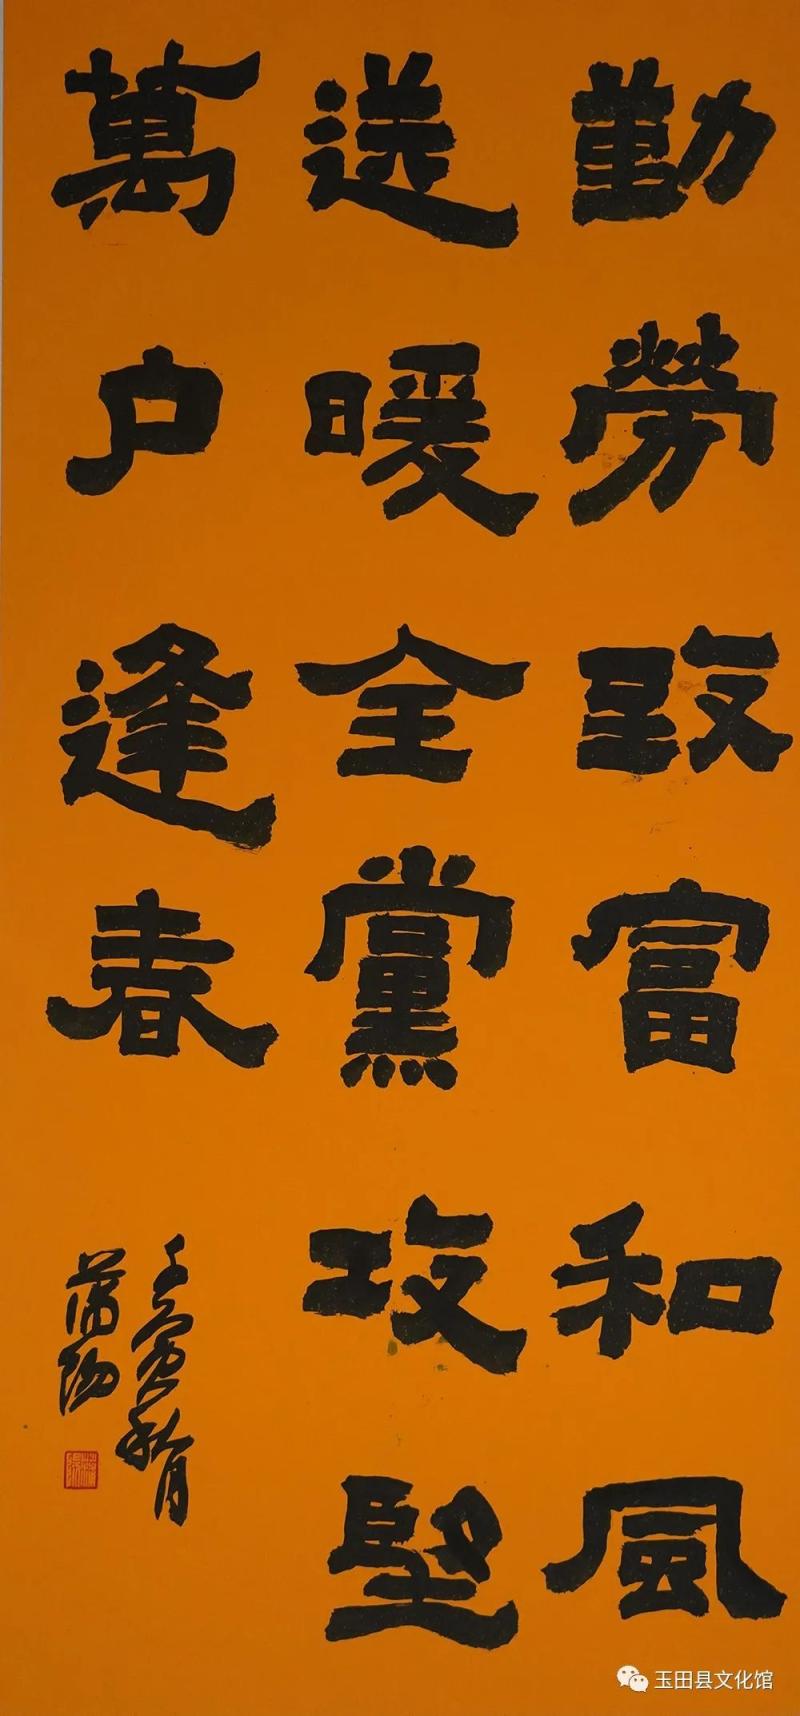 勤勞致富和風
送暖全黨攻堅
萬户逢春
壬寅秋月
蒲陽
玉田县文化馆